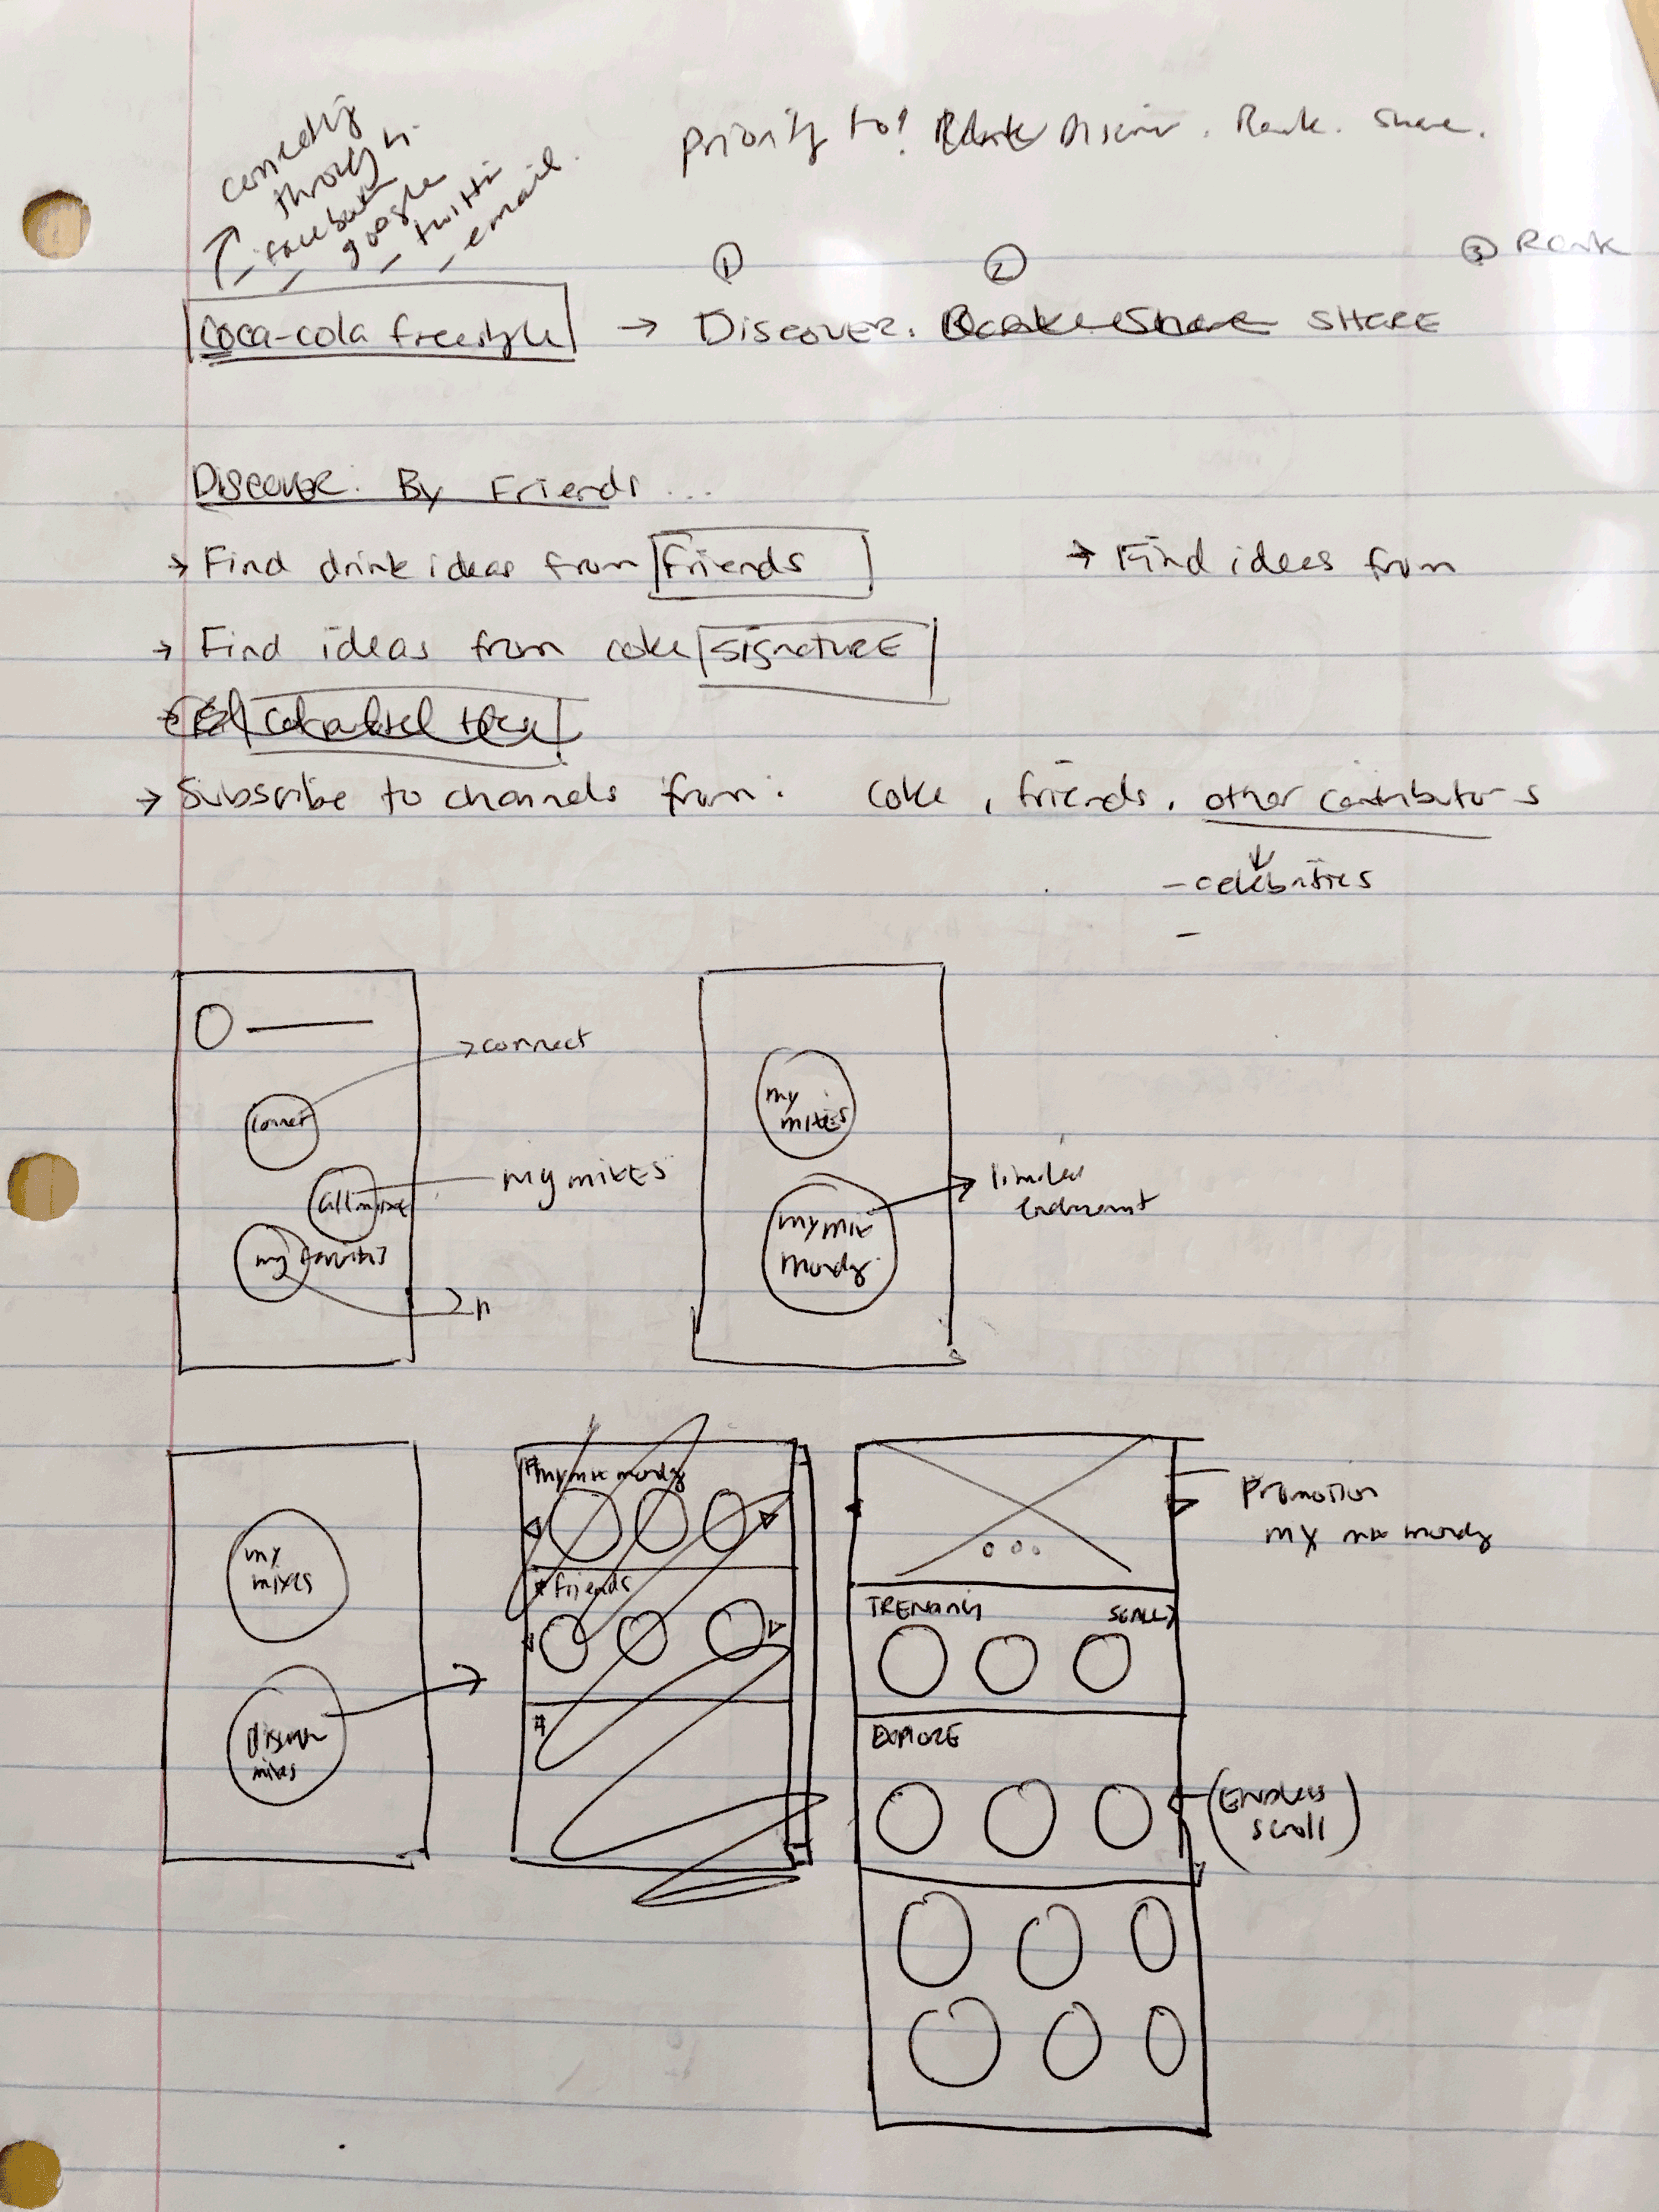 connecting
through:
facebook
google
twitter
email.
Priority to! Discover. Rank. Share.
① ② ③ Rank
Coca-cola freestyle → DISCOVER. SHARE
DISCOVER: By Friends ...
→ Find drink ideas from Friends
→ Find ideas from
→ Find ideas from coke SIGNATURE
→ Subscribe to channels from: coke, friends, other contributors
- celebrities
-
→ connect
connect
all mixes
my mixes
my favorites
my
mixes
my mix
monday
→ limited
my
mixes
discover
mixes
#mymix monday
# friends
#
Promotion
my mix monday
TRENDING
EXPLORE
(Endless
scroll)